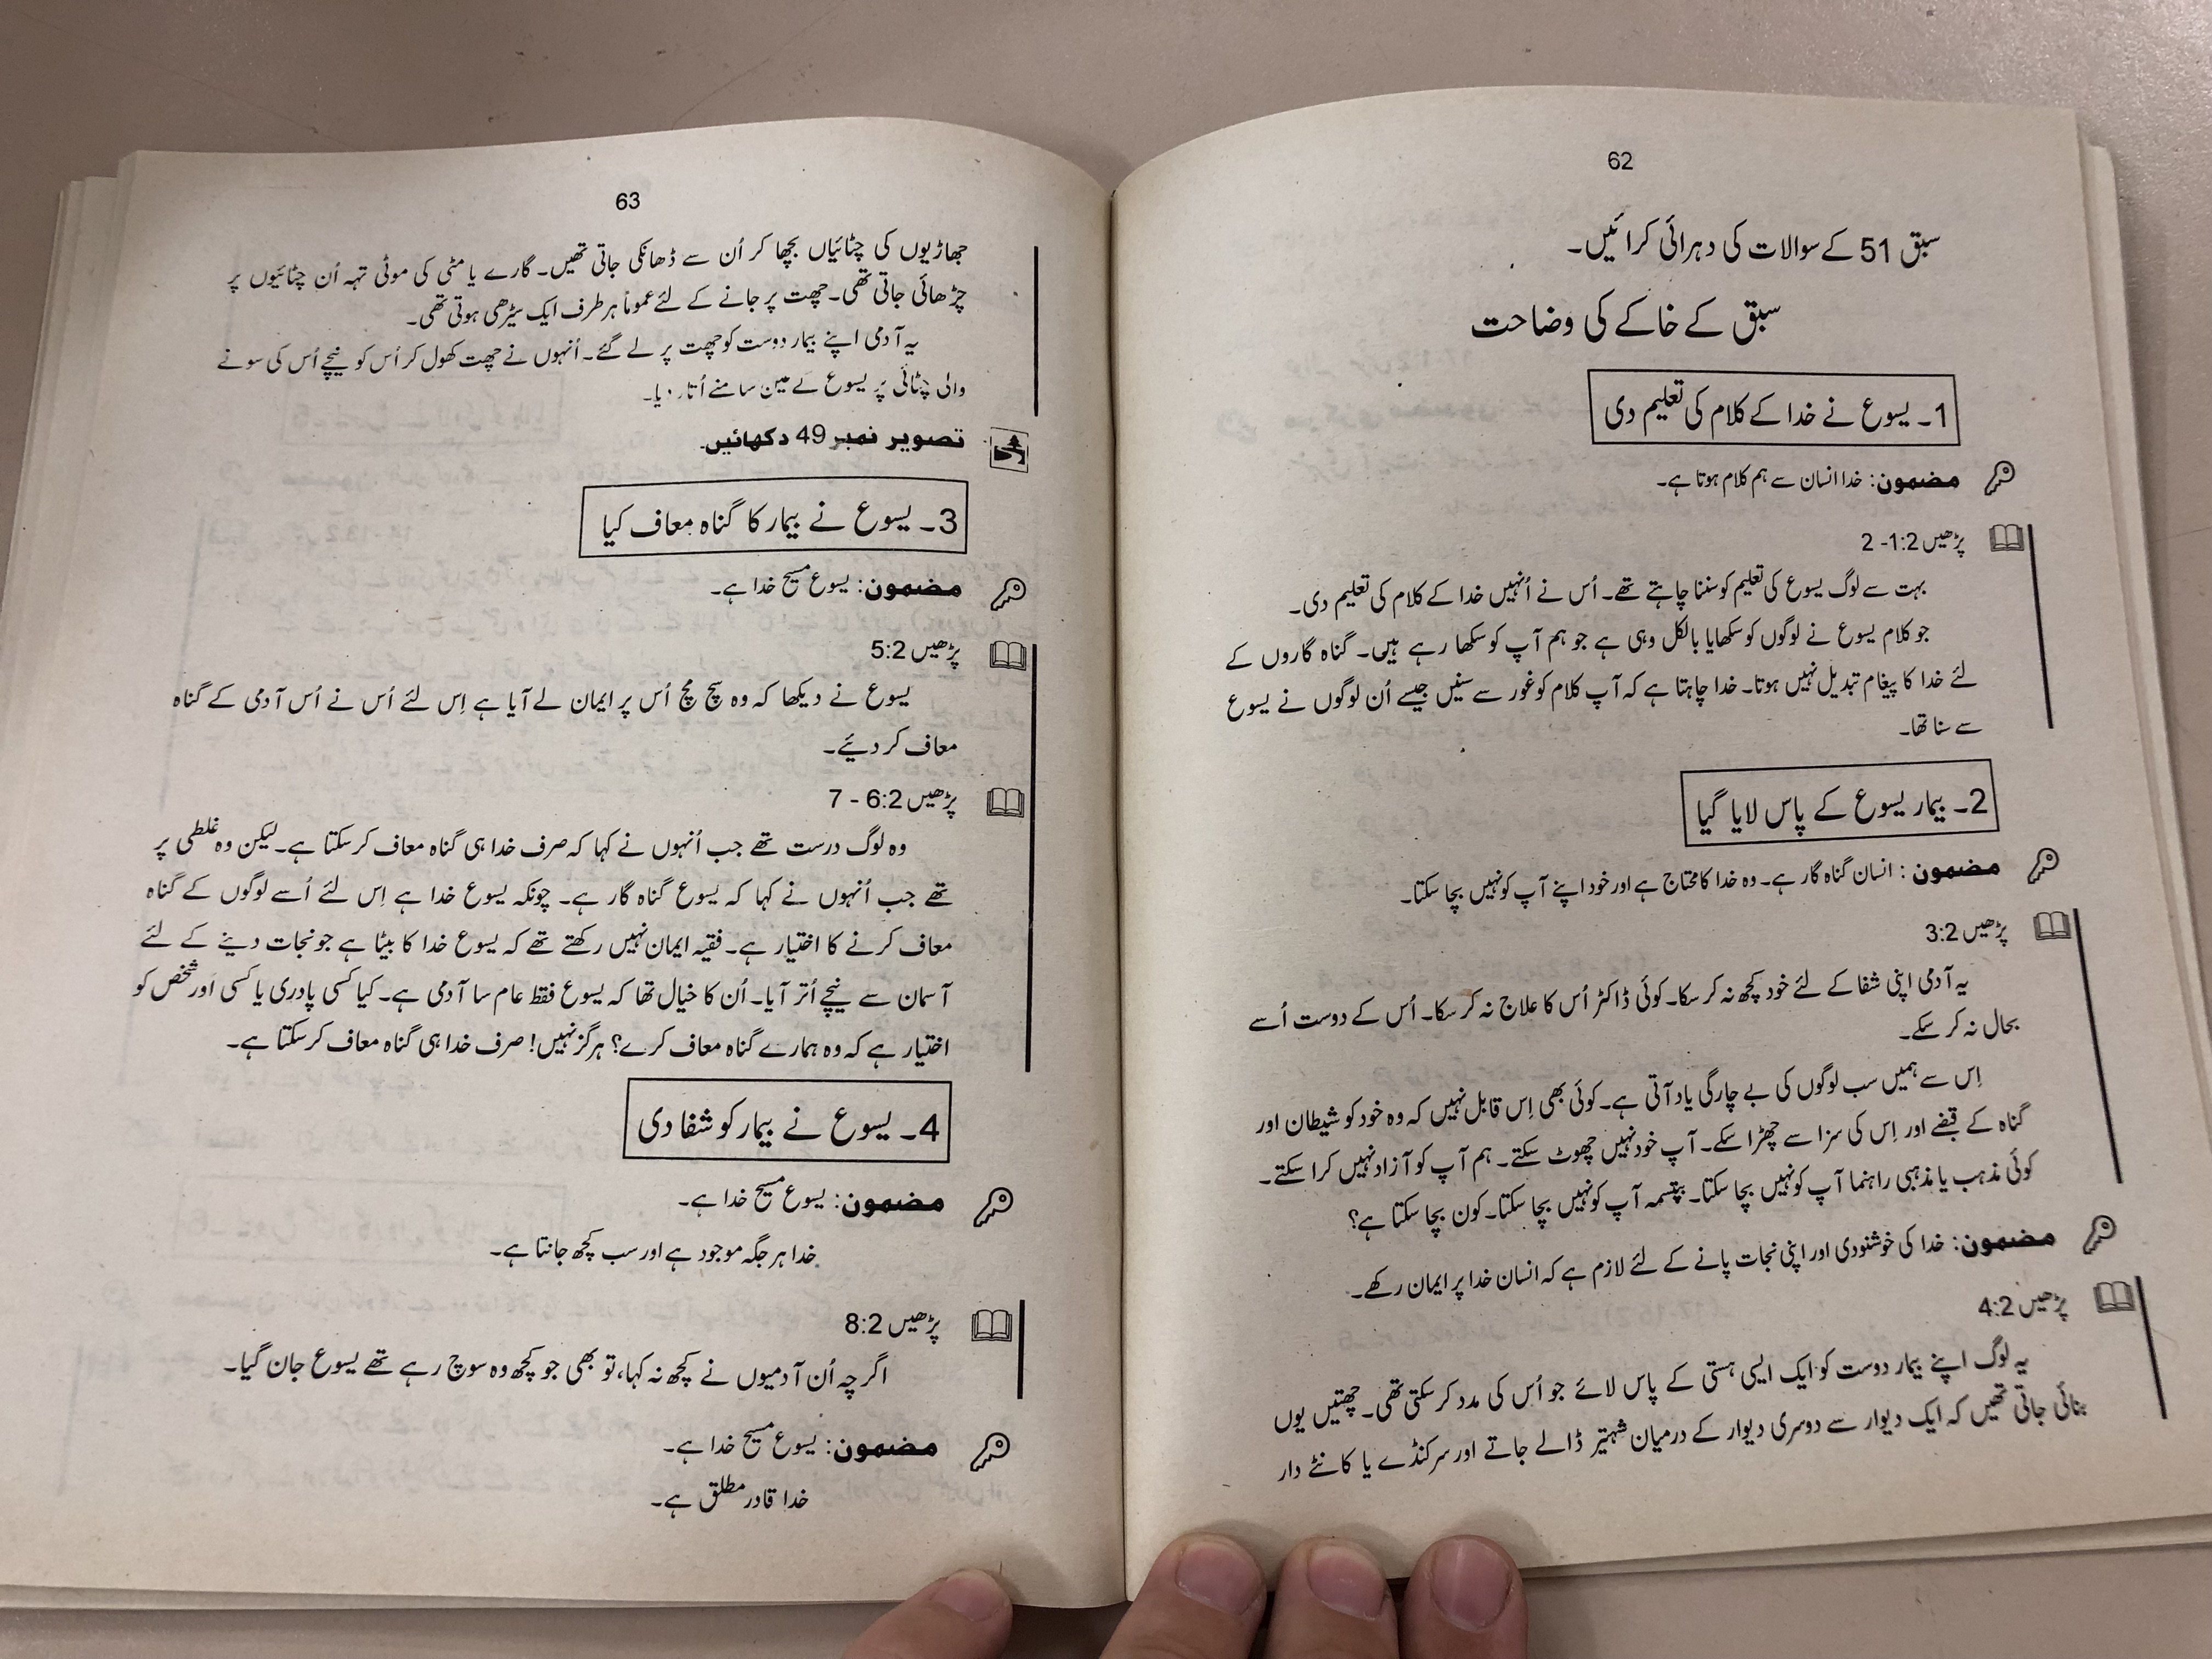 62
سبق 51 کے سوالات کی دہرائی کرائیں۔
سبق کے خاکے کی وضاحت
1۔ یسوع نے خدا کے کلام کی تعلیم دی
مضمون: خدا انسان سے ہم کلام ہوتا ہے۔
پڑھیں 1:2- 2
بہت سے لوگ یسوع کی تعلیم کو سننا چاہتے تھے۔ اُس نے اُنہیں خدا کے کلام کی تعلیم دی۔
جو کلام یسوع نے لوگوں کو سکھایا بالکل وہی ہے جو ہم آپ کو سکھا رہے ہیں۔ گناہ گاروں کے
لئے خدا کا پیغام تبدیل نہیں ہوتا۔ خدا چاہتا ہے کہ آپ کلام کو غور سے سنیں جیسے اُن لوگوں نے یسوع
سے سنا تھا۔
2۔ بیمار یسوع کے پاس لایا گیا
مضمون : انسان گناہ گار ہے۔ وہ خدا کا محتاج ہے اور خود اپنے آپ کو نہیں بچا سکتا۔
پڑھیں 3:2
یہ آدمی اپنی شفا کے لئے خود کچھ نہ کر سکا۔ کوئی ڈاکٹر اُس کا علاج نہ کر سکا۔ اُس کے دوست اُسے
بحال نہ کر سکے۔
اِس سے ہمیں سب لوگوں کی بے چارگی یاد آتی ہے۔ کوئی بھی اِس قابل نہیں کہ وہ خود کو شیطان اور
گناہ کے قبضے اور اِس کی سزا سے چھڑا سکے۔ آپ خود نہیں چھوٹ سکتے۔ ہم آپ کو آزاد نہیں کرا سکتے۔
کوئی مذہب یا مذہبی راہنما آپ کو نہیں بچا سکتا۔ بپتسمہ آپ کو نہیں بچا سکتا۔ کون بچا سکتا ہے؟
مضمون: خدا کی خوشنودی اور اپنی نجات پانے کے لئے لازم ہے کہ انسان خدا پر ایمان رکھے۔
پڑھیں 4:2
یہ لوگ اپنے بیمار دوست کو ایک ایسی ہستی کے پاس لائے جو اُس کی مدد کر سکتی تھی۔ چھتیں یوں
بنائی جاتی تھیں کہ ایک دیوار سے دوسری دیوار کے درمیان شہتیر ڈالے جاتے اور سرکنڈے یا کانٹے دار
63
جھاڑیوں کی چٹائیاں بچھا کر اُن سے ڈھانکی جاتی تھیں۔ گارے یا مٹی کی موٹی تہہ اُن چٹائیوں پر
چڑھائی جاتی تھی۔ چھت پر جانے کے لئے عموماً ہر طرف ایک سیڑھی ہوتی تھی۔
یہ آدمی اپنے بیمار دوست کو چھت پر لے گئے۔ اُنہوں نے چھت کھول کر اُس کو نیچے اُس کی سونے
والی چٹائی پر یسوع کے عین سامنے اُتار دیا۔
تصویر نمبر 49 دکھائیں۔
3۔ یسوع نے بیمار کا گناہ معاف کیا
مضمون: یسوع مسیح خدا ہے۔
پڑھیں 5:2
یسوع نے دیکھا کہ وہ سچ مچ اُس پر ایمان لے آیا ہے اِس لئے اُس نے اُس آدمی کے گناہ
معاف کر دیئے۔
پڑھیں 6:2 - 7
وہ لوگ درست تھے جب اُنہوں نے کہا کہ صرف خدا ہی گناہ معاف کر سکتا ہے۔ لیکن وہ غلطی پر
تھے جب اُنہوں نے کہا کہ یسوع گناہ گار ہے۔ چونکہ یسوع خدا ہے اِس لئے اُسے لوگوں کے گناہ
معاف کرنے کا اختیار ہے۔ فقیہ ایمان نہیں رکھتے تھے کہ یسوع خدا کا بیٹا ہے جو نجات دینے کے لئے
آسمان سے نیچے اُتر آیا۔ اُن کا خیال تھا کہ یسوع فقط عام سا آدمی ہے۔ کیا کسی پادری یا کسی اور شخص کو
اختیار ہے کہ وہ ہمارے گناہ معاف کرے؟ ہرگز نہیں! صرف خدا ہی گناہ معاف کر سکتا ہے۔
4۔ یسوع نے بیمار کو شفا دی
مضمون: یسوع مسیح خدا ہے۔
خدا ہر جگہ موجود ہے اور سب کچھ جانتا ہے۔
پڑھیں 8:2
اگرچہ اُن آدمیوں نے کچھ نہ کہا، تو بھی جو کچھ وہ سوچ رہے تھے یسوع جان گیا۔
مضمون: یسوع مسیح خدا ہے۔
خدا قادر مطلق ہے۔